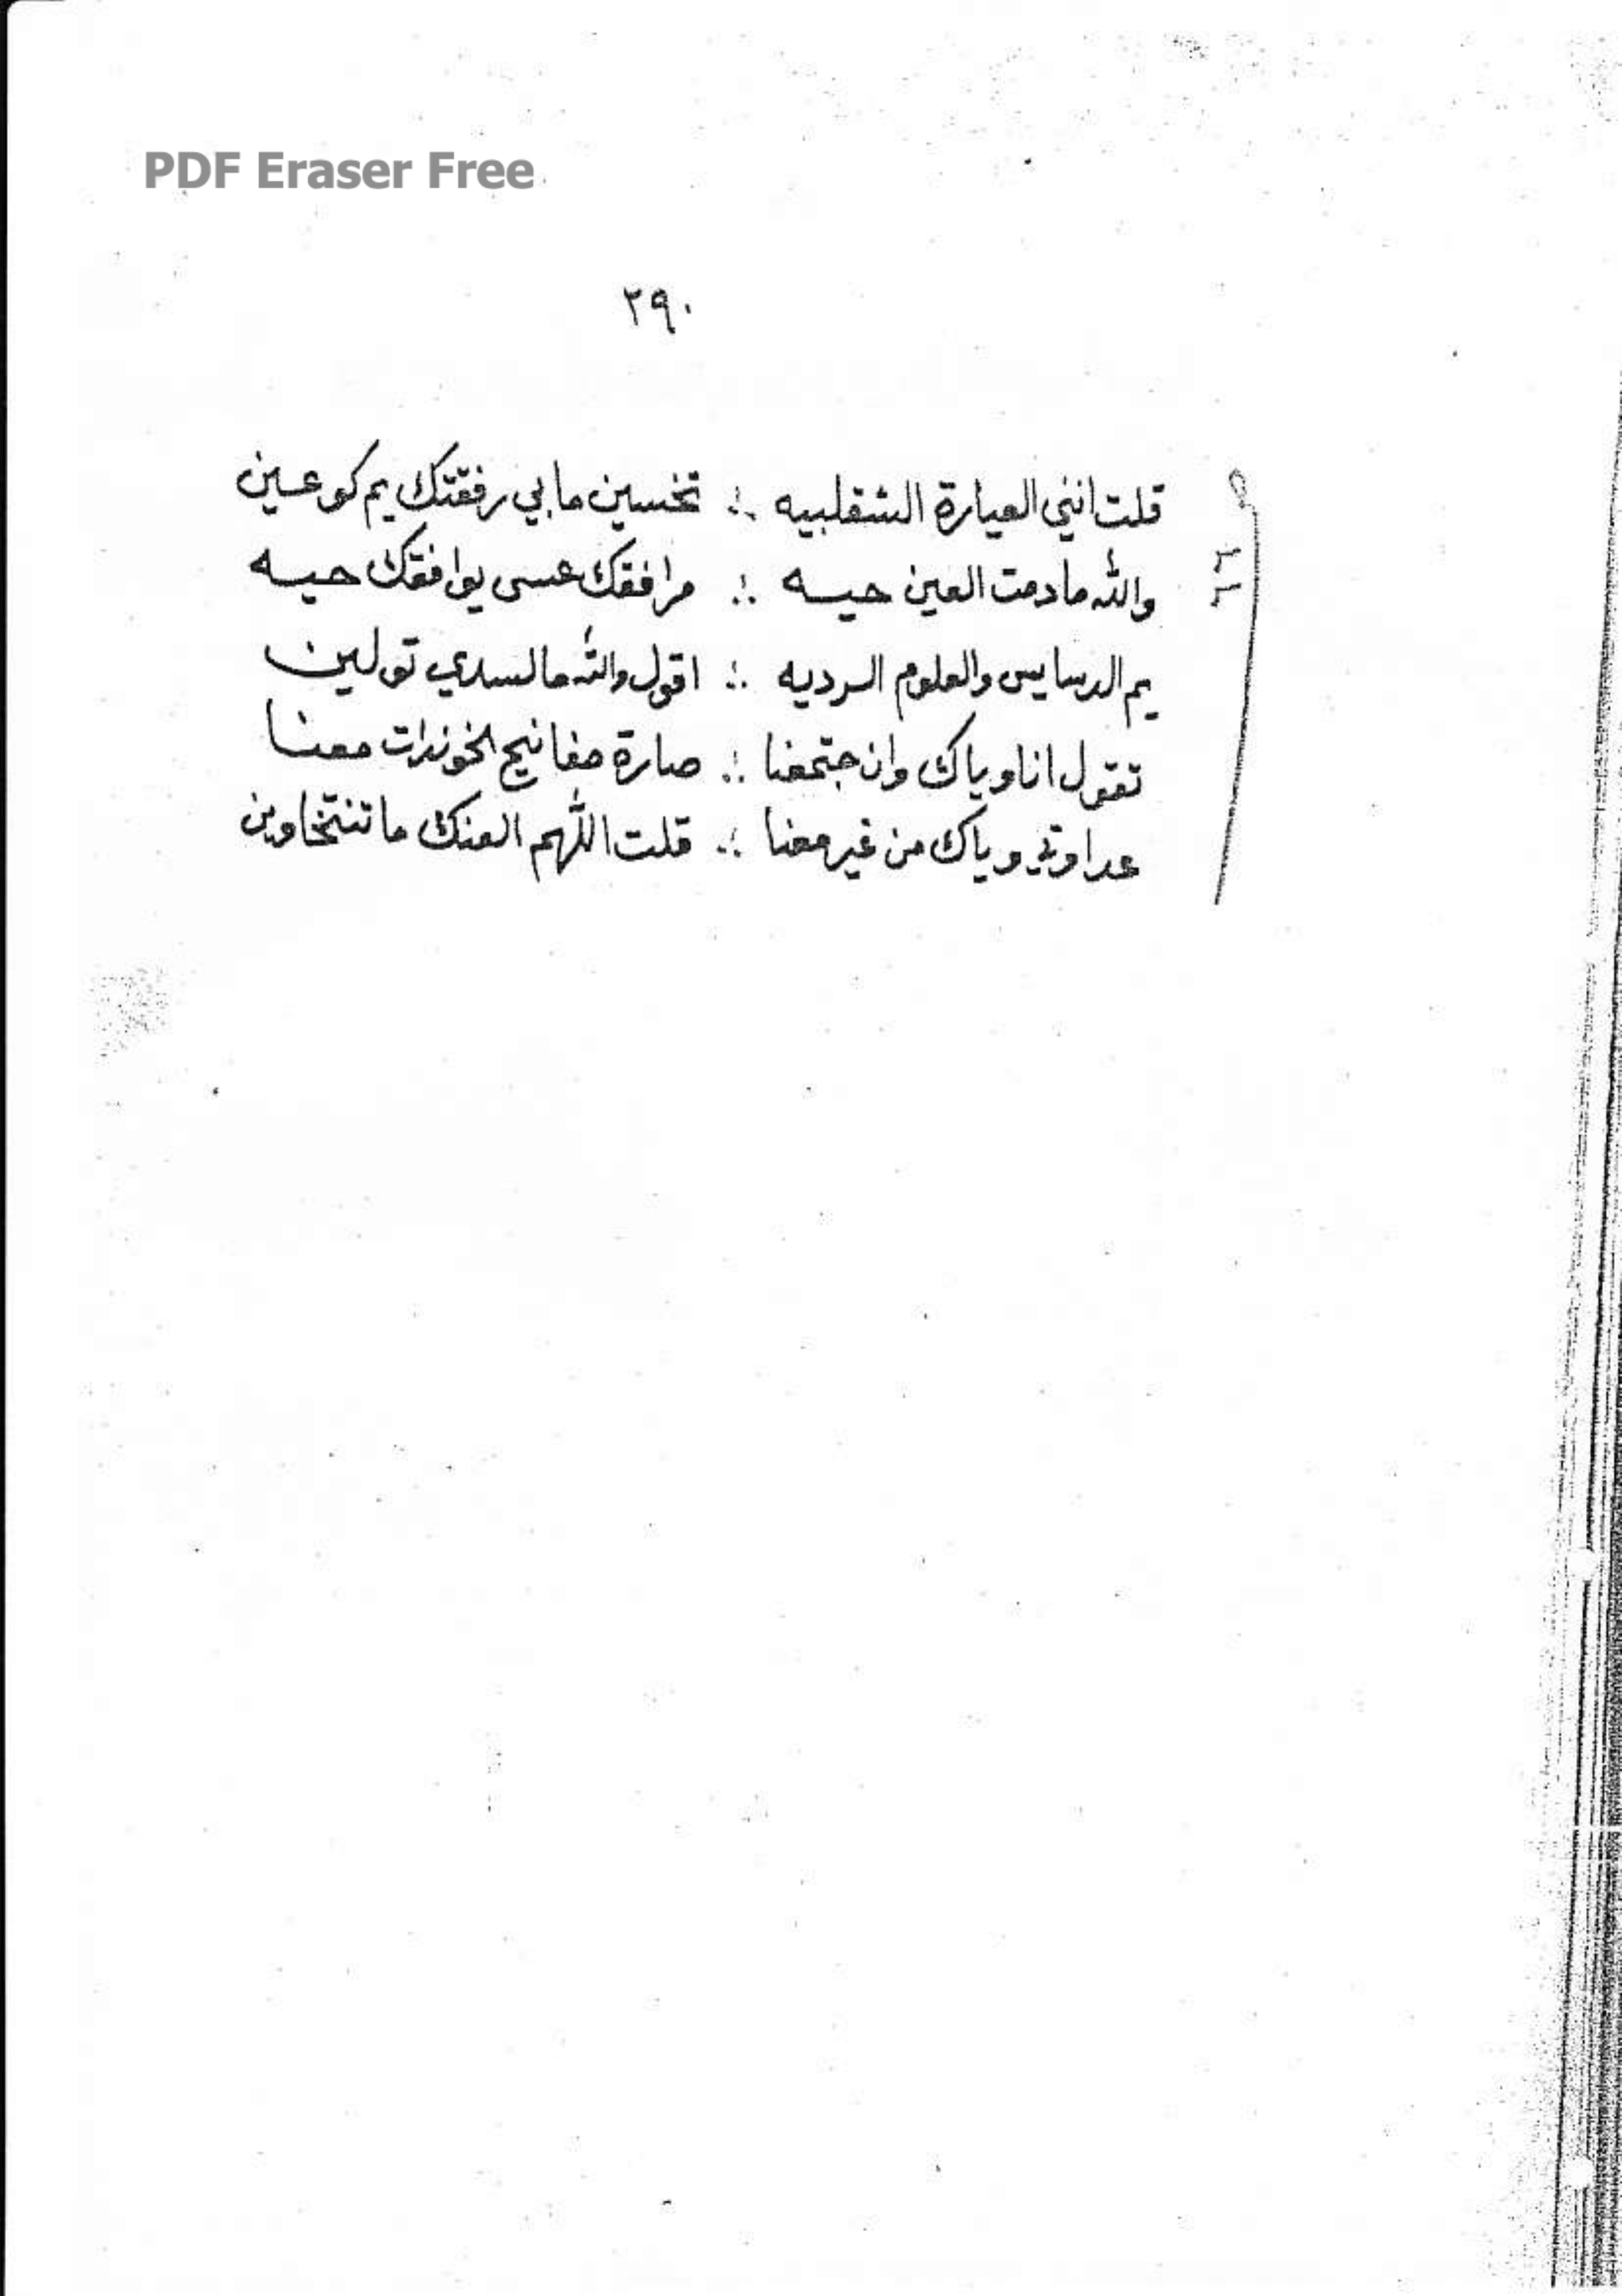 PDF Eraser Free
٢٩٠
قلت انني العيارة الشقلبيه ∴ تخسين مابي رفقتك يم كوعين
والله مادمت العين حيه ∴ مرافقك عسى يوافقك حيه
يم الدسايس والعلوم الرديه ∴ اقول والله مالسدي تولين
تقول انا وياك وان جتمعنا ∴ صارة مفاتيح الخوندات معنا
عداوتي وياك من غير معنا ∴ قلت اللهم العنك ماتنتخاوين